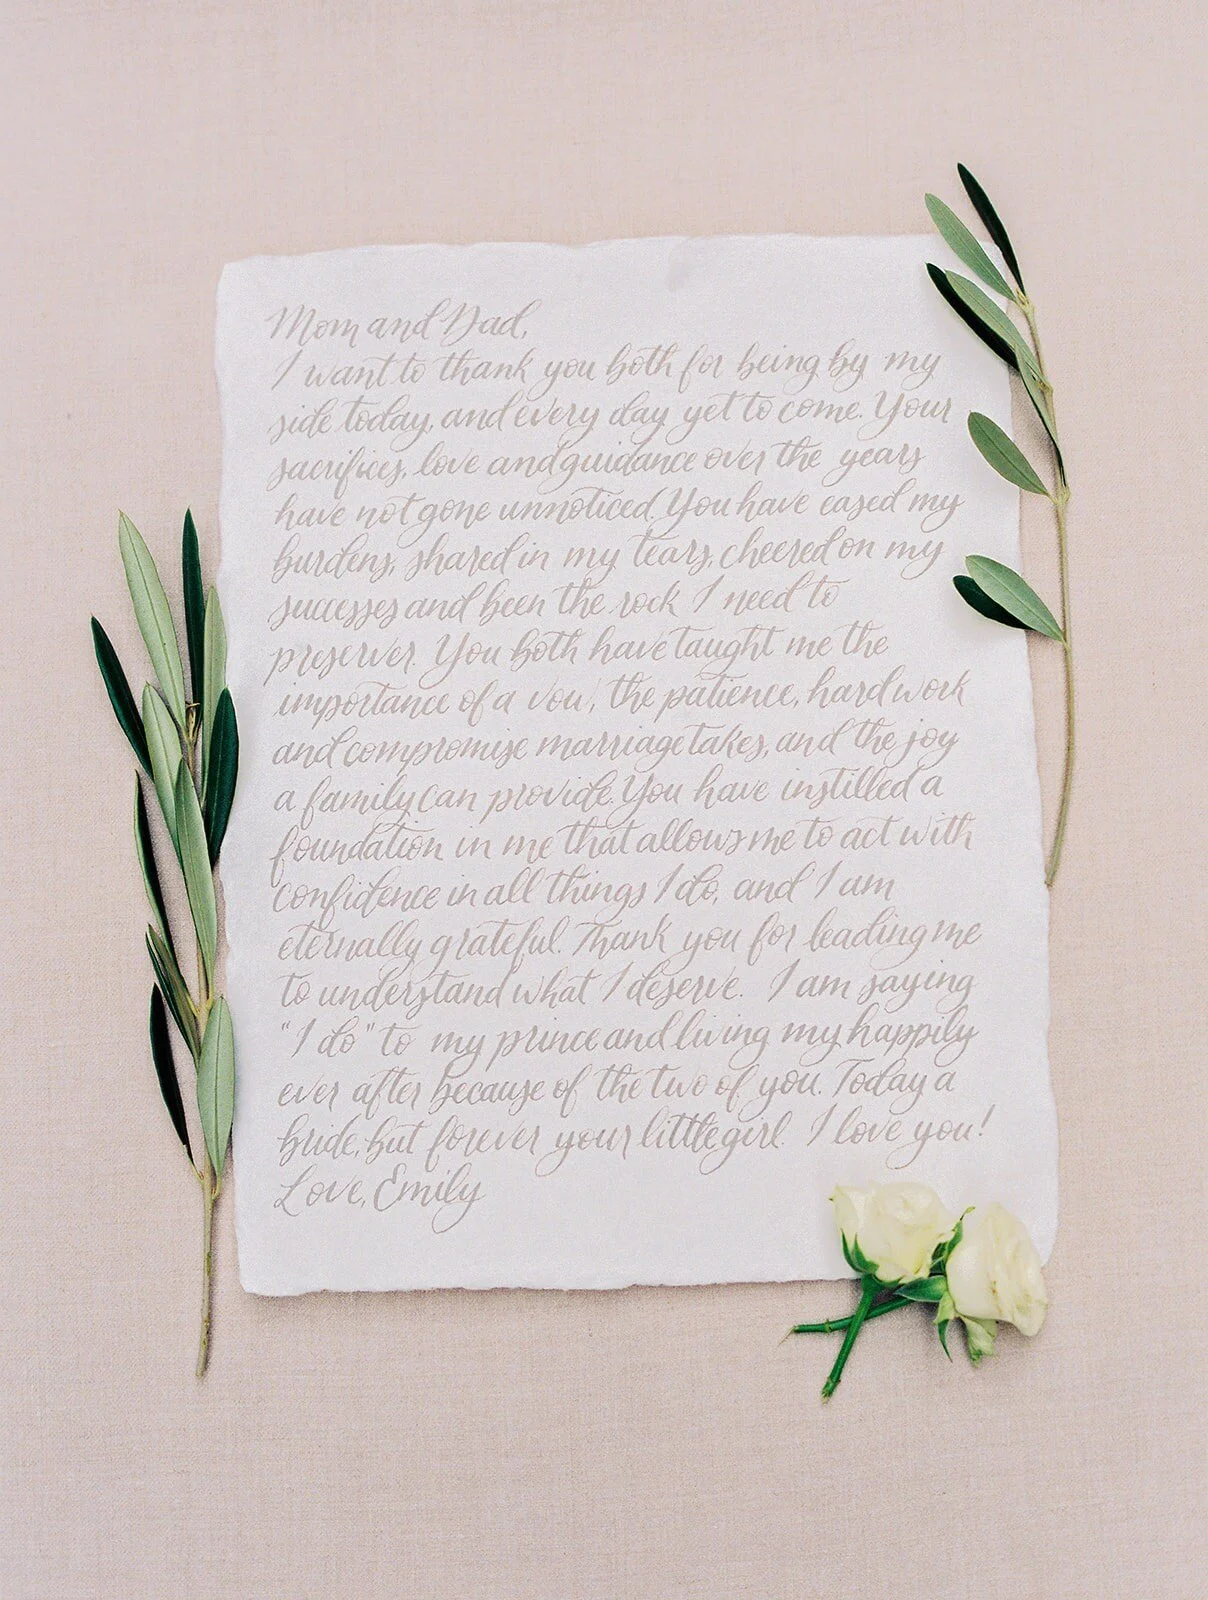 Mom and Dad,
I want to thank you both for being by my
side today, and every day yet to come. Your
sacrifices, love and guidance over the years
have not gone unnoticed. You have eased my
burdens, shared in my tears, cheered on my
successes and been the rock I need to
preserver. You both have taught me the
importance of a vow, the patience, hard work
and compromise marriage takes, and the joy
a family can provide. You have instilled a
foundation in me that allows me to act with
confidence in all things I do, and I am
eternally grateful. Thank you for leading me
to understand what I deserve. I am saying
"I do" to my prince and living my happily
ever after because of the two of you. Today a
bride, but forever your little girl. I love you!
Love, Emily